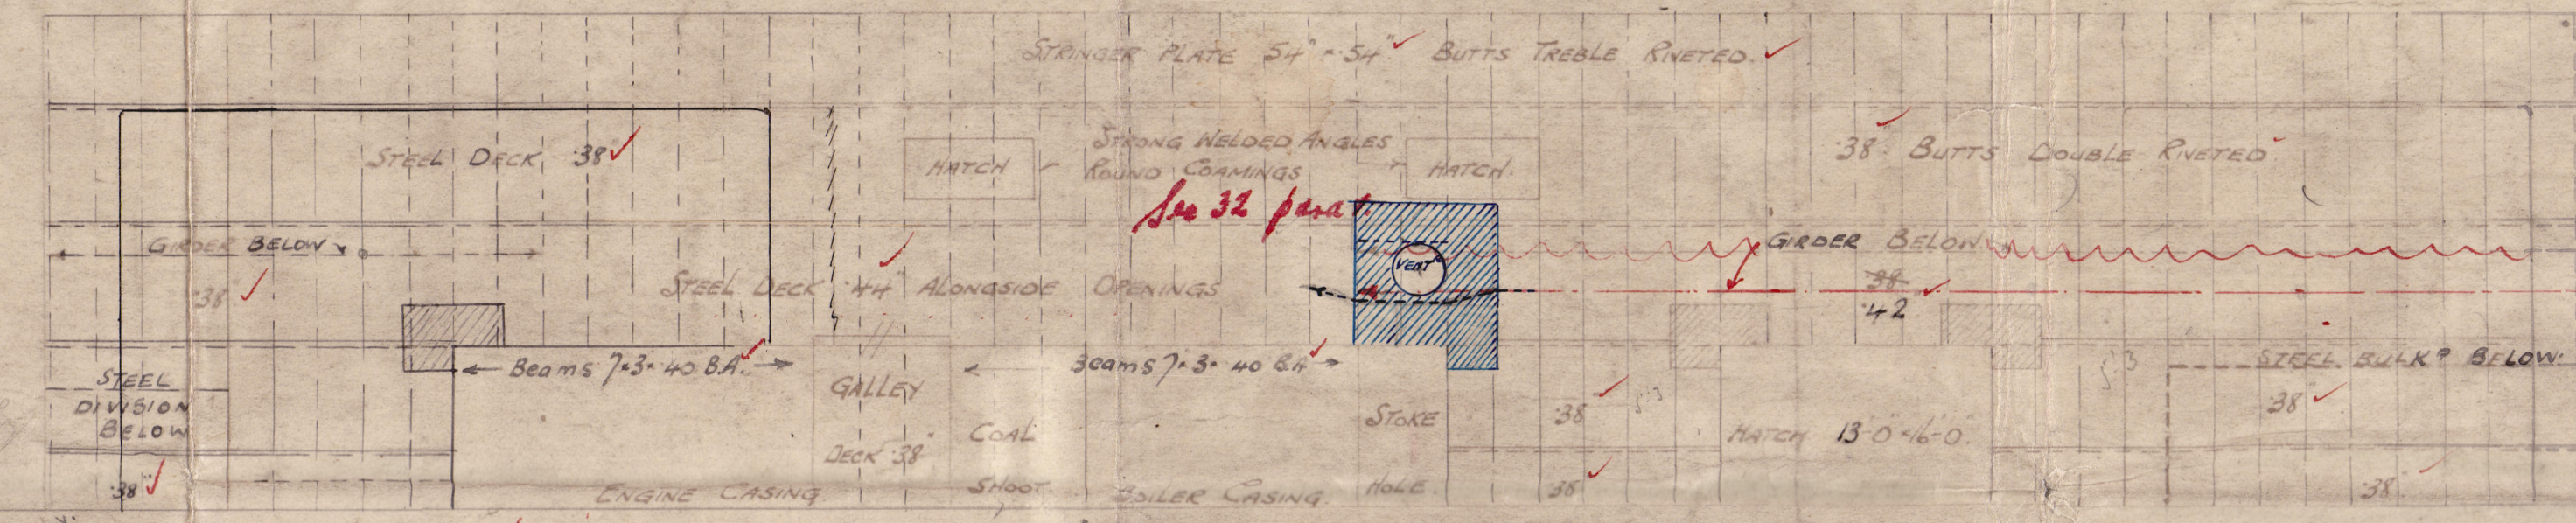 STRINGER PLATE 54" × .54" BUTTS TREBLE RIVETED.
STEEL DECK .38
STRONG WELDED ANGLES
ROUND COAMINGS
HATCH
HATCH.
.38" BUTTS DOUBLE RIVETED.
See 32 para 1.
GIRDER BELOW
.38
STEEL DECK .44" ALONGSIDE OPENINGS
VENT
GIRDER BELOW
.38
.42
Beams 7×3×.40 B.A.
Beams 7×3×.40 B.A
STEEL BULKD BELOW.
STEEL
DIVISION
BELOW
GALLEY
DECK .38"
COAL
SHOOT
STOKE
HOLE.
.38
.38
HATCH 13'-0" × 16'-0".
.38
.38
.38
ENGINE CASING
BOILER CASING.